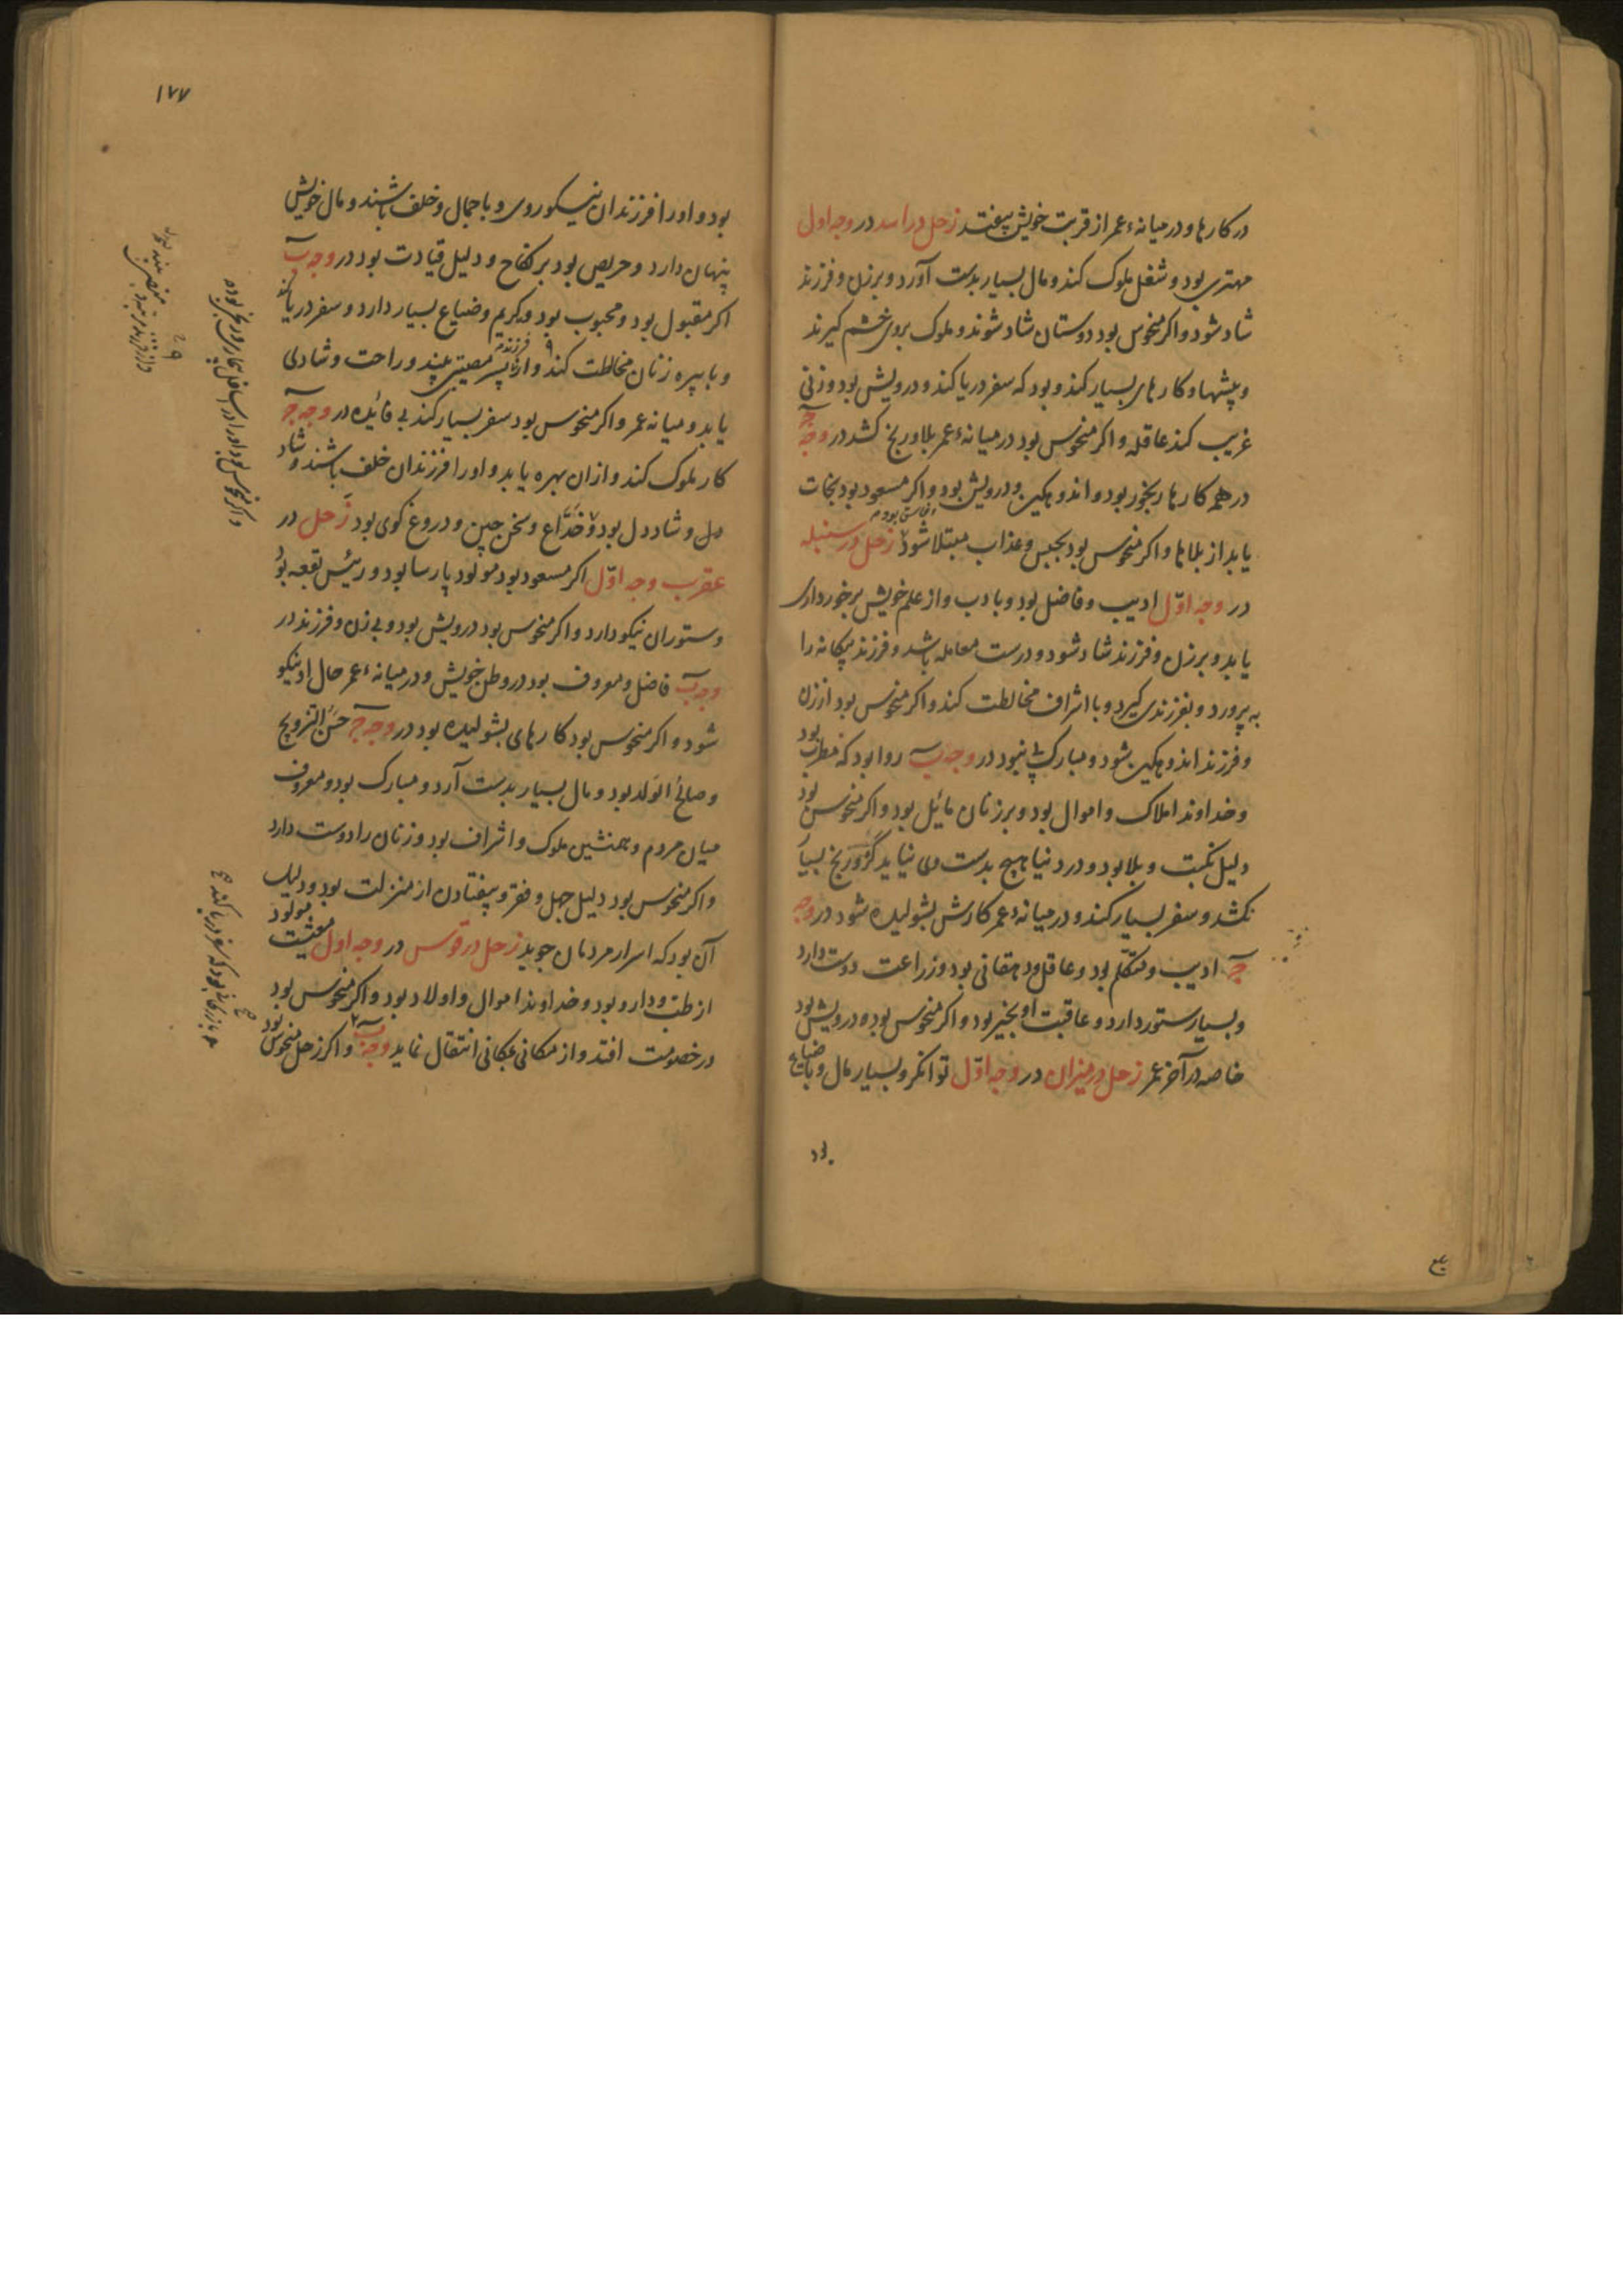 در کارها و در میانهٔ عمر از قربت خویش بیفتد زحل در اسد در وجه اول
مهتری بود و شغل ملوک کند و مال بسیار بدست آورد و بر زن و فرزند
شاد شود و اکر منحوس بود دوستان شاد شوند و ملوک بروی خشم کیرند
و پیشها و کارهای بسیار کند و بود که سفر دریا کند و درویش بود و زنی
غریب کند عاقله و اکر منحوس بود در میانهٔ عمر بلا و رنج کشد در وجه ج
در همه کارها رنجور بود و اندوهکین و درویش بود و اکر مسعود بود نجات
یابد از بلاها و اکر منحوس بود بحبس و عذاب مبتلا شود زحل در سنبله
در وجه اوّل ادیب و فاضل بود و با ادب و از علم خویش برخورداری
یابد و بر زن و فرزند شاد شود و درست معامله باشد و فرزند بیکانه را
به پرورد و بفرزندی کیرد و با اشراف مخالطت کند و اکر منحوس بود از زن
و فرزند اندوهکین شود و مبارک پی نبود در وجه ب روا بود که مطرب بود
و خداوند املاک و اموال بود و بر زنان مائل بود و اکر منحوس بود
دلیل نکبت و بلا بود و در دنیا هیچ بدست وی نیاید کرو رنج بسیار
بکشد و سفر بسیار کند و در میانهٔ عمر کارش بشولیده شود در وجه
ج ادیب و متکلّم بود و عاقل و دهقانی بود و زراعت دوست دارد
و بسیار ستور دارد و عاقبت او بخیر بود و اکر منحوس بود درویش بود
خاصه در آخر عمر زحل در میزان در وجه اوّل توانکر و بسیار مال و با ضیاع
بود
۱۷۷
بود و او را فرزندان نیکوروی و با جمال و خلف باشند و مال خویش
پنهان دارد و حریص بود بر نکاح و دلیل قیادت بود در وجه ب
اکر مقبول بود و محبوب بود و کریم و ضیاع بسیار دارد و سفر دریا کند
و با پیره زنان مخالطت کند و از پسر مصیبتی بیند و راحت و شادی
یابد و میانه عمر و اکر منحوس بود سفر بسیار کند بی فائده در وجه ج
کار ملوک کند و ازان بهره یابد و او را فرزندان خلف باشند و شاد
دل و شاد دل بود و خدّاع و سخن چین و دروغ کوی بود زحل در
عقرب وجه اوّل اکر مسعود بود مولود پارسا بود و رئیس بقعه بود
و ستوران نیکو دارد و اکر منحوس بود درویش بود و بی زن و فرزند در
وجه ب فاضل و معروف بود در وطن خویش و در میانهٔ عمر حال او نیکو
شود و اکر منحوس بود کارهای بشولیده بود در وجه ج حسن التزویج
و صالح الولد بود و مال بسیار بدست آرد و مبارک بود و معروف
میان مردم و همنشین ملوک و اشراف بود و زنان را دوست دارد
و اکر منحوس بود دلیل جهل و فقر و بیفتادن از منزلت بود و دلیل
آن بود که اسرار مردمان جوید زحل در قوس در وجه اول معیشت مولود
از طب و دارو بود و خداوند اموال و اولاد بود و اکر منحوس بود
در خصومت افتد و از مکانی بمکانی انتقال نماید وجه ب و اکر زحل منحوس بود